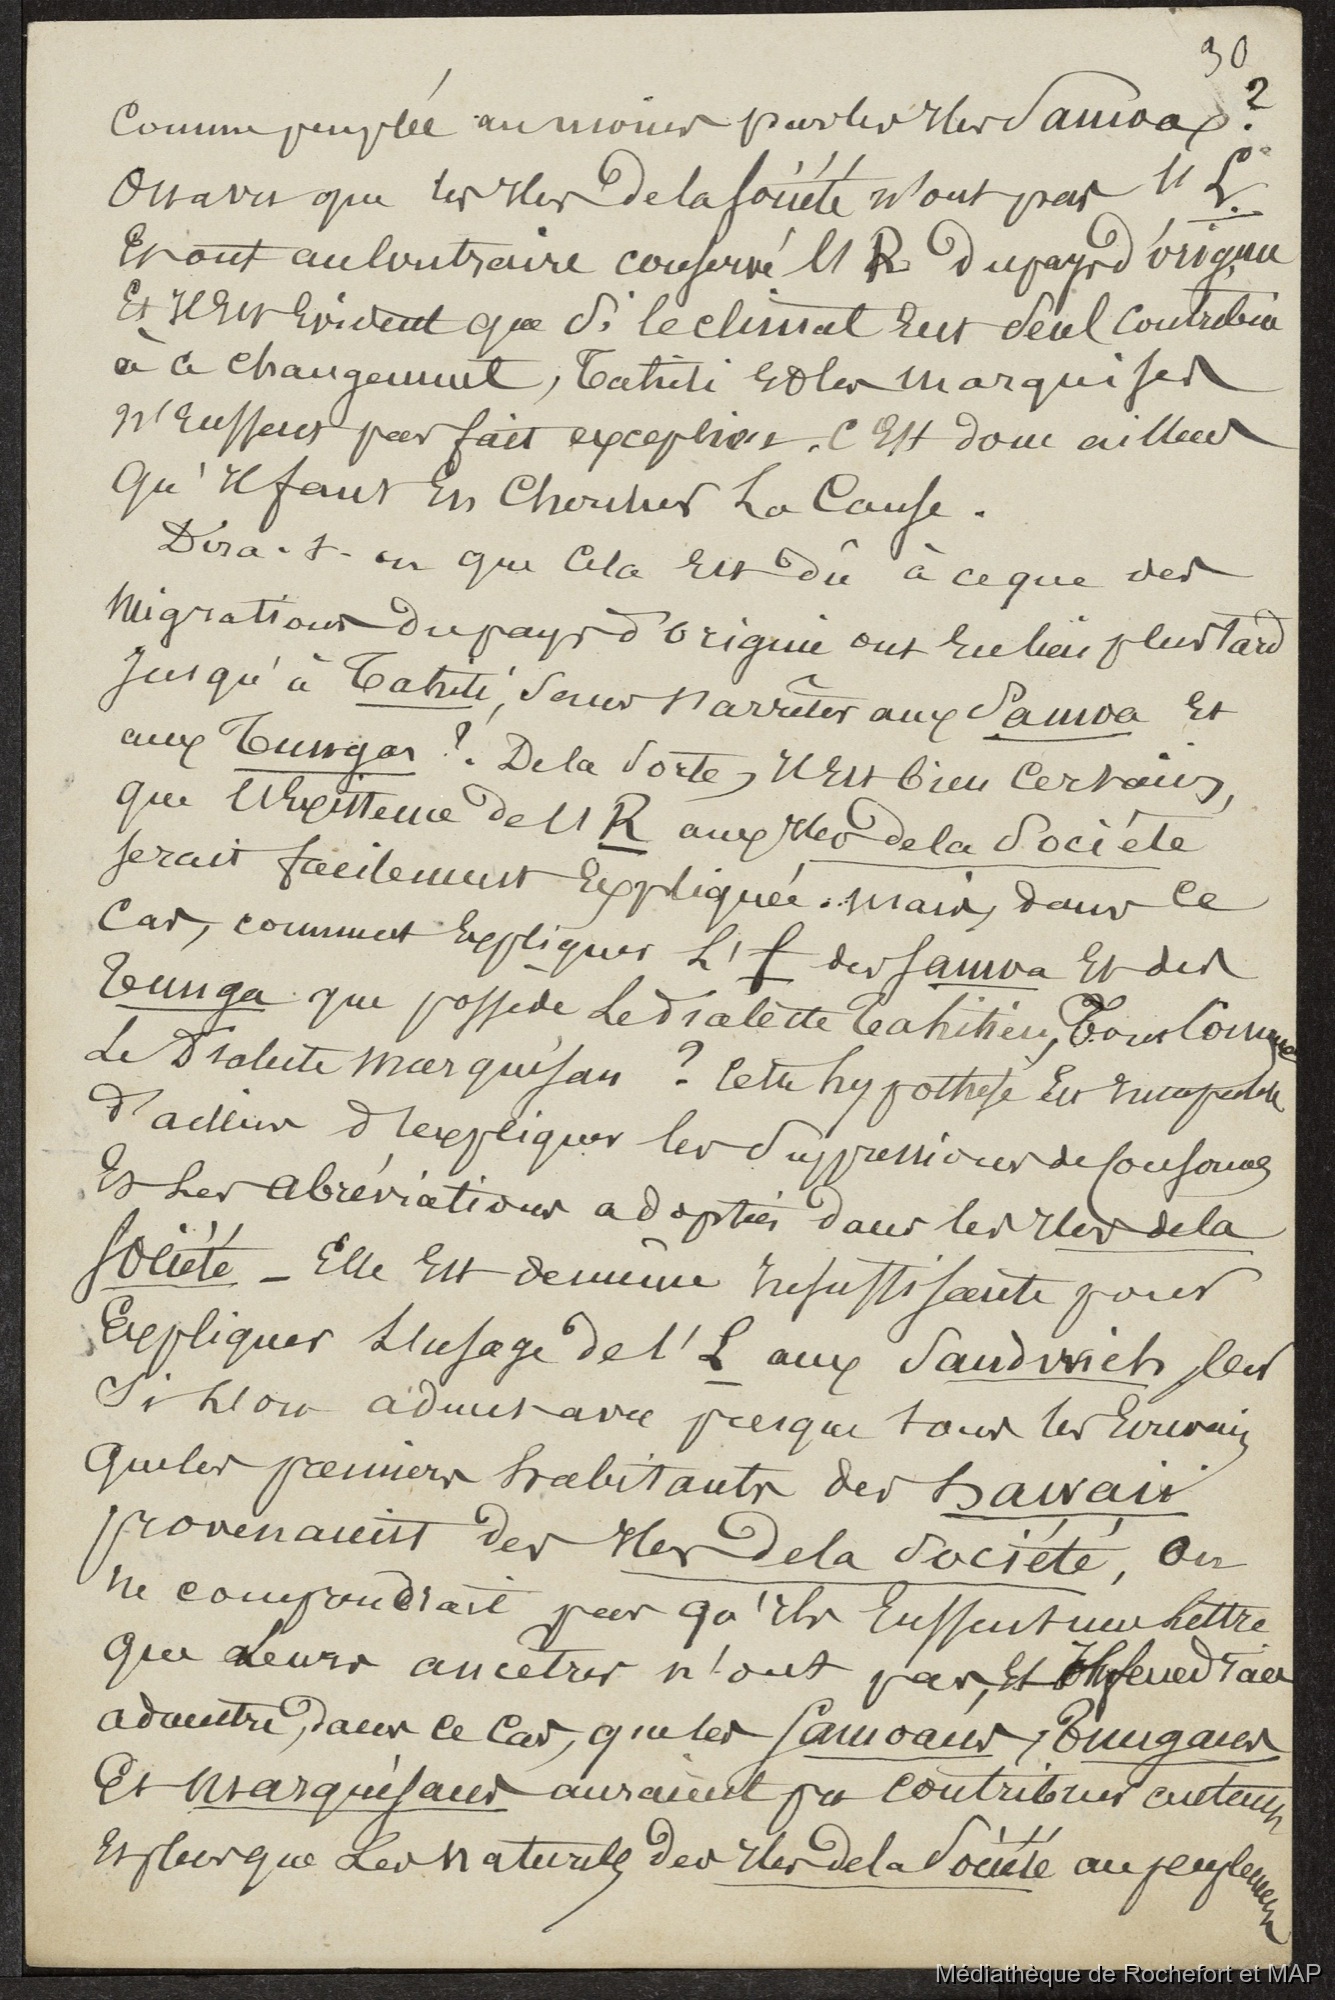 30
Comme peuplée au moins par les Iles Samoa ?
On a vu que les Iles de la Société n'ont pas l'L.
Et ont au contraire conservé l'R du pays d'origine
Et il est évident que si le climat eut seul contribué
à ce changement, Tahiti et les Marquises
n'eussent pas fait exception. C'est donc ailleurs
qu'il faut en chercher la Cause.
Dira-t-on que cela est dû à ce que des
Migrations du pays d'origine ont eu lieu plus tard
jusqu'à Tahiti, sans s'arrêter aux Samoa et
aux Tungas ? De la sorte, il est bien certain,
que l'existence de l'R aux Iles de la Société
serait facilement expliquée. Mais, dans ce
cas, comment expliquer l'f des Samoa et des
Tunga que possède le dialecte Tahitien, Tout comme
le Dialecte Marquisan ? Cette hypothèse est
d'ailleurs d'expliquer les suppressions de consonnes
Et les abréviations adoptées dans les Iles de la
Société - Elle est de même insuffisante pour
Expliquer l'usage de l'L aux Sandwich, car
Si l'on admet avec presque tous les Ecrivains
que les premiers habitants des hawaii
provenaient des Iles de la Société, On
ne comprendrait pas qu'ils eussent une lettre
que leurs ancêtres n'ont pas, et il faudrait
admettre, dans ce cas, que les Samoans, Tungans
Et Marquisans auraient pu contribuer autant
Et plus que les naturels des Iles de la Société au peuplement
Médiathèque de Rochefort et MAP